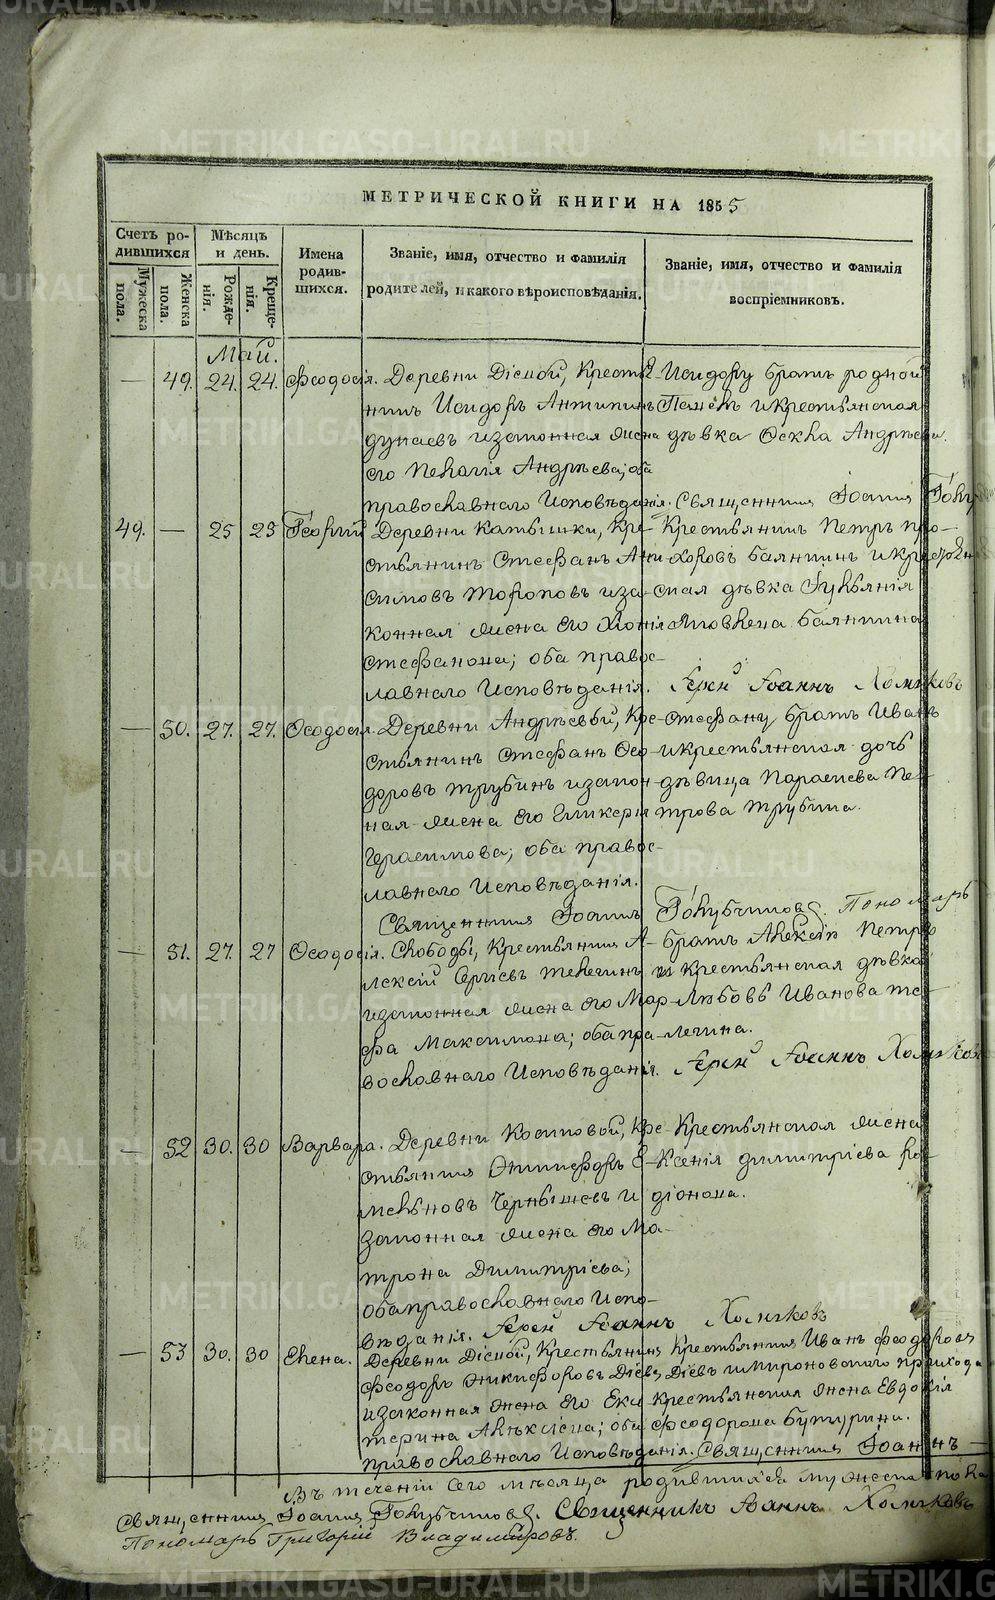 МЕТРИЧЕСКОЙ КНИГИ НА 1855
Счетъ родившихся
Мужеска пола.
Женска пола.
Мѣсяцъ и день.
Рожденія.
Крещенія.
Имена родившихся.
Званіе, имя, отчество и фамилія родителей, и какого вѣроисповѣданія.
Званіе, имя, отчество и фамилія воспріемниковъ.
Май.
— 49. 24. 24. Феодосія. Деревни Дісвой, Крестья-
нинъ Исидоръ Антипинъ
Дунаевъ изаконная жена
его Пелагія Андрѣева; оба
православнаго Исповѣданія.
Исидору братъ родной
и крестьянская
дѣвка Андрѣева.
Священникъ Іоаннъ
49. — 25 25 Георгий Деревни Катышки, Кре-
стьянинъ Стефанъ Ани-
симовъ Тороповъ иза-
конная жена его Хіонія
Стефанова; оба правос-
лавнаго Исповѣданія.
Крестьянинъ Петръ Про-
хоровъ Балнинъ и крестьян-
ская дѣвка
Яковлева Балнина
Іоаннъ Холмковъ
— 50. 27. 27. Феодосія. Деревни Андрѣевой, Кре-
стьянинъ Стефанъ Фео-
доровъ Трубинъ изакон-
ная жена его Гликерія
Герасимова; оба правос-
лавнаго Исповѣданія.
Стефану братъ Иванъ
и крестьянская дочь
дѣвица Параскева Пе-
трова Трубина.
Священникъ Іоаннъ Голубчиковъ. Пономарь
— 51. 27. 27 Феодосія. Слободы, Крестьянинъ А-
лексій Сергѣевъ Телегинъ
изаконная жена его Мар-
фа Максимова; оба пра-
вославнаго Исповѣданія.
братъ Алексій Петръ
и Крестьянская дѣвка
Любовь Иванова Те-
легина.
Іоаннъ Холмковъ
— 52 30. 30 Варвара. Деревни Косиковой, Кре-
стьянинъ Никифоръ Е-
мельяновъ Чернышевъ и
законная жена его Ма-
трона Димитріева;
оба православнаго Испо-
вѣданія.
Крестьянская жена
Ксенія Димитріева Ро-
діонова.
Іоаннъ Холмковъ
— 53 30. 30 Елена. Деревни Дісвой, Крестьянинъ
Феодоръ Никифоровъ Дієвъ
изаконная жена его Ека-
терина Алексіева; оба
православнаго Исповѣданія.
Крестьянинъ Иванъ Феодоровъ
Дієвъ прихода
и Крестьянская жена Евдокія
Феодорова Бутурина.
Священникъ Іоаннъ
Въ теченіи сего мѣсяца родившихся мужеска пола
Священникъ Іоаннъ Голубчиковъ. Священникъ Іоаннъ Холмковъ
Пономарь Григорій Владимировъ.
METRIKI.GASO-URAL.RU